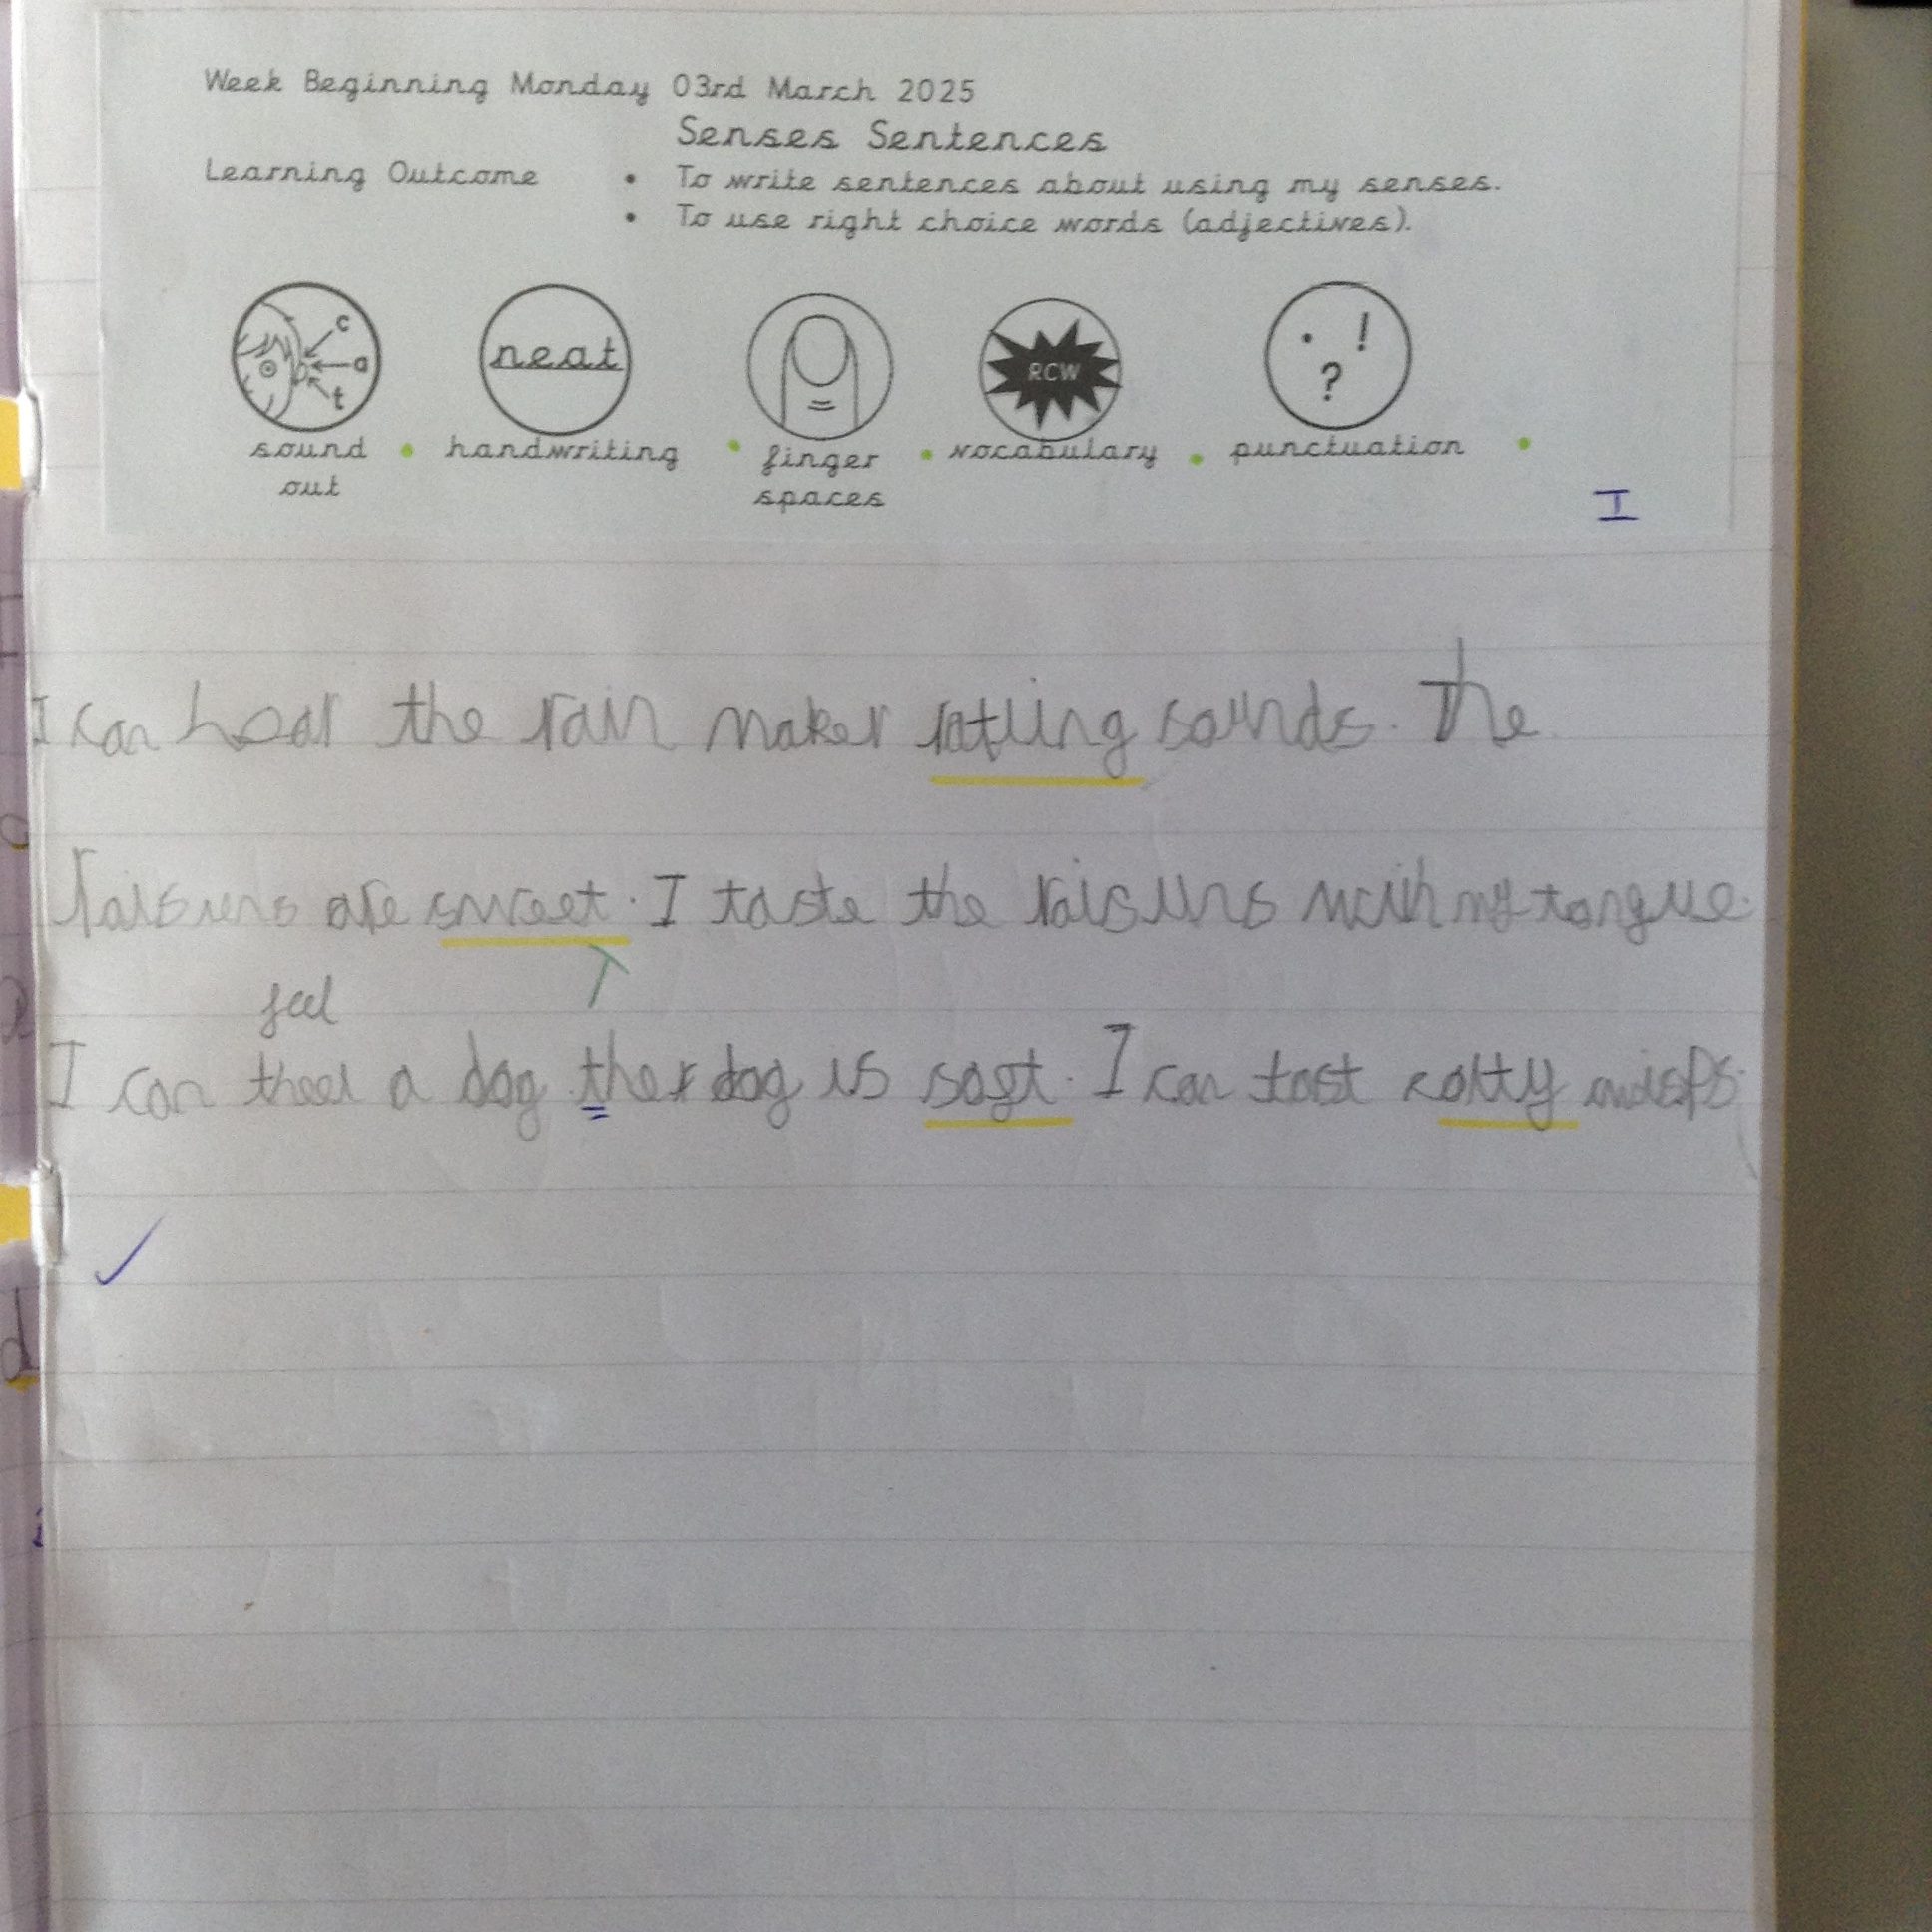 Week Beginning Monday 03rd March 2025
Senses Sentences
Learning Outcome • To write sentences about using my senses.
• To use right choice words (adjectives).
c
a
t
neat
RCW
. !
?
sound out
handwriting
finger spaces
vocabulary
punctuation
I
I can hear the rain maker ratling sounds. The
raisuns are sweet. I taste the raisuns with my tongue.
feel
T
I can theel a dog the dog is soft. I can tast salty